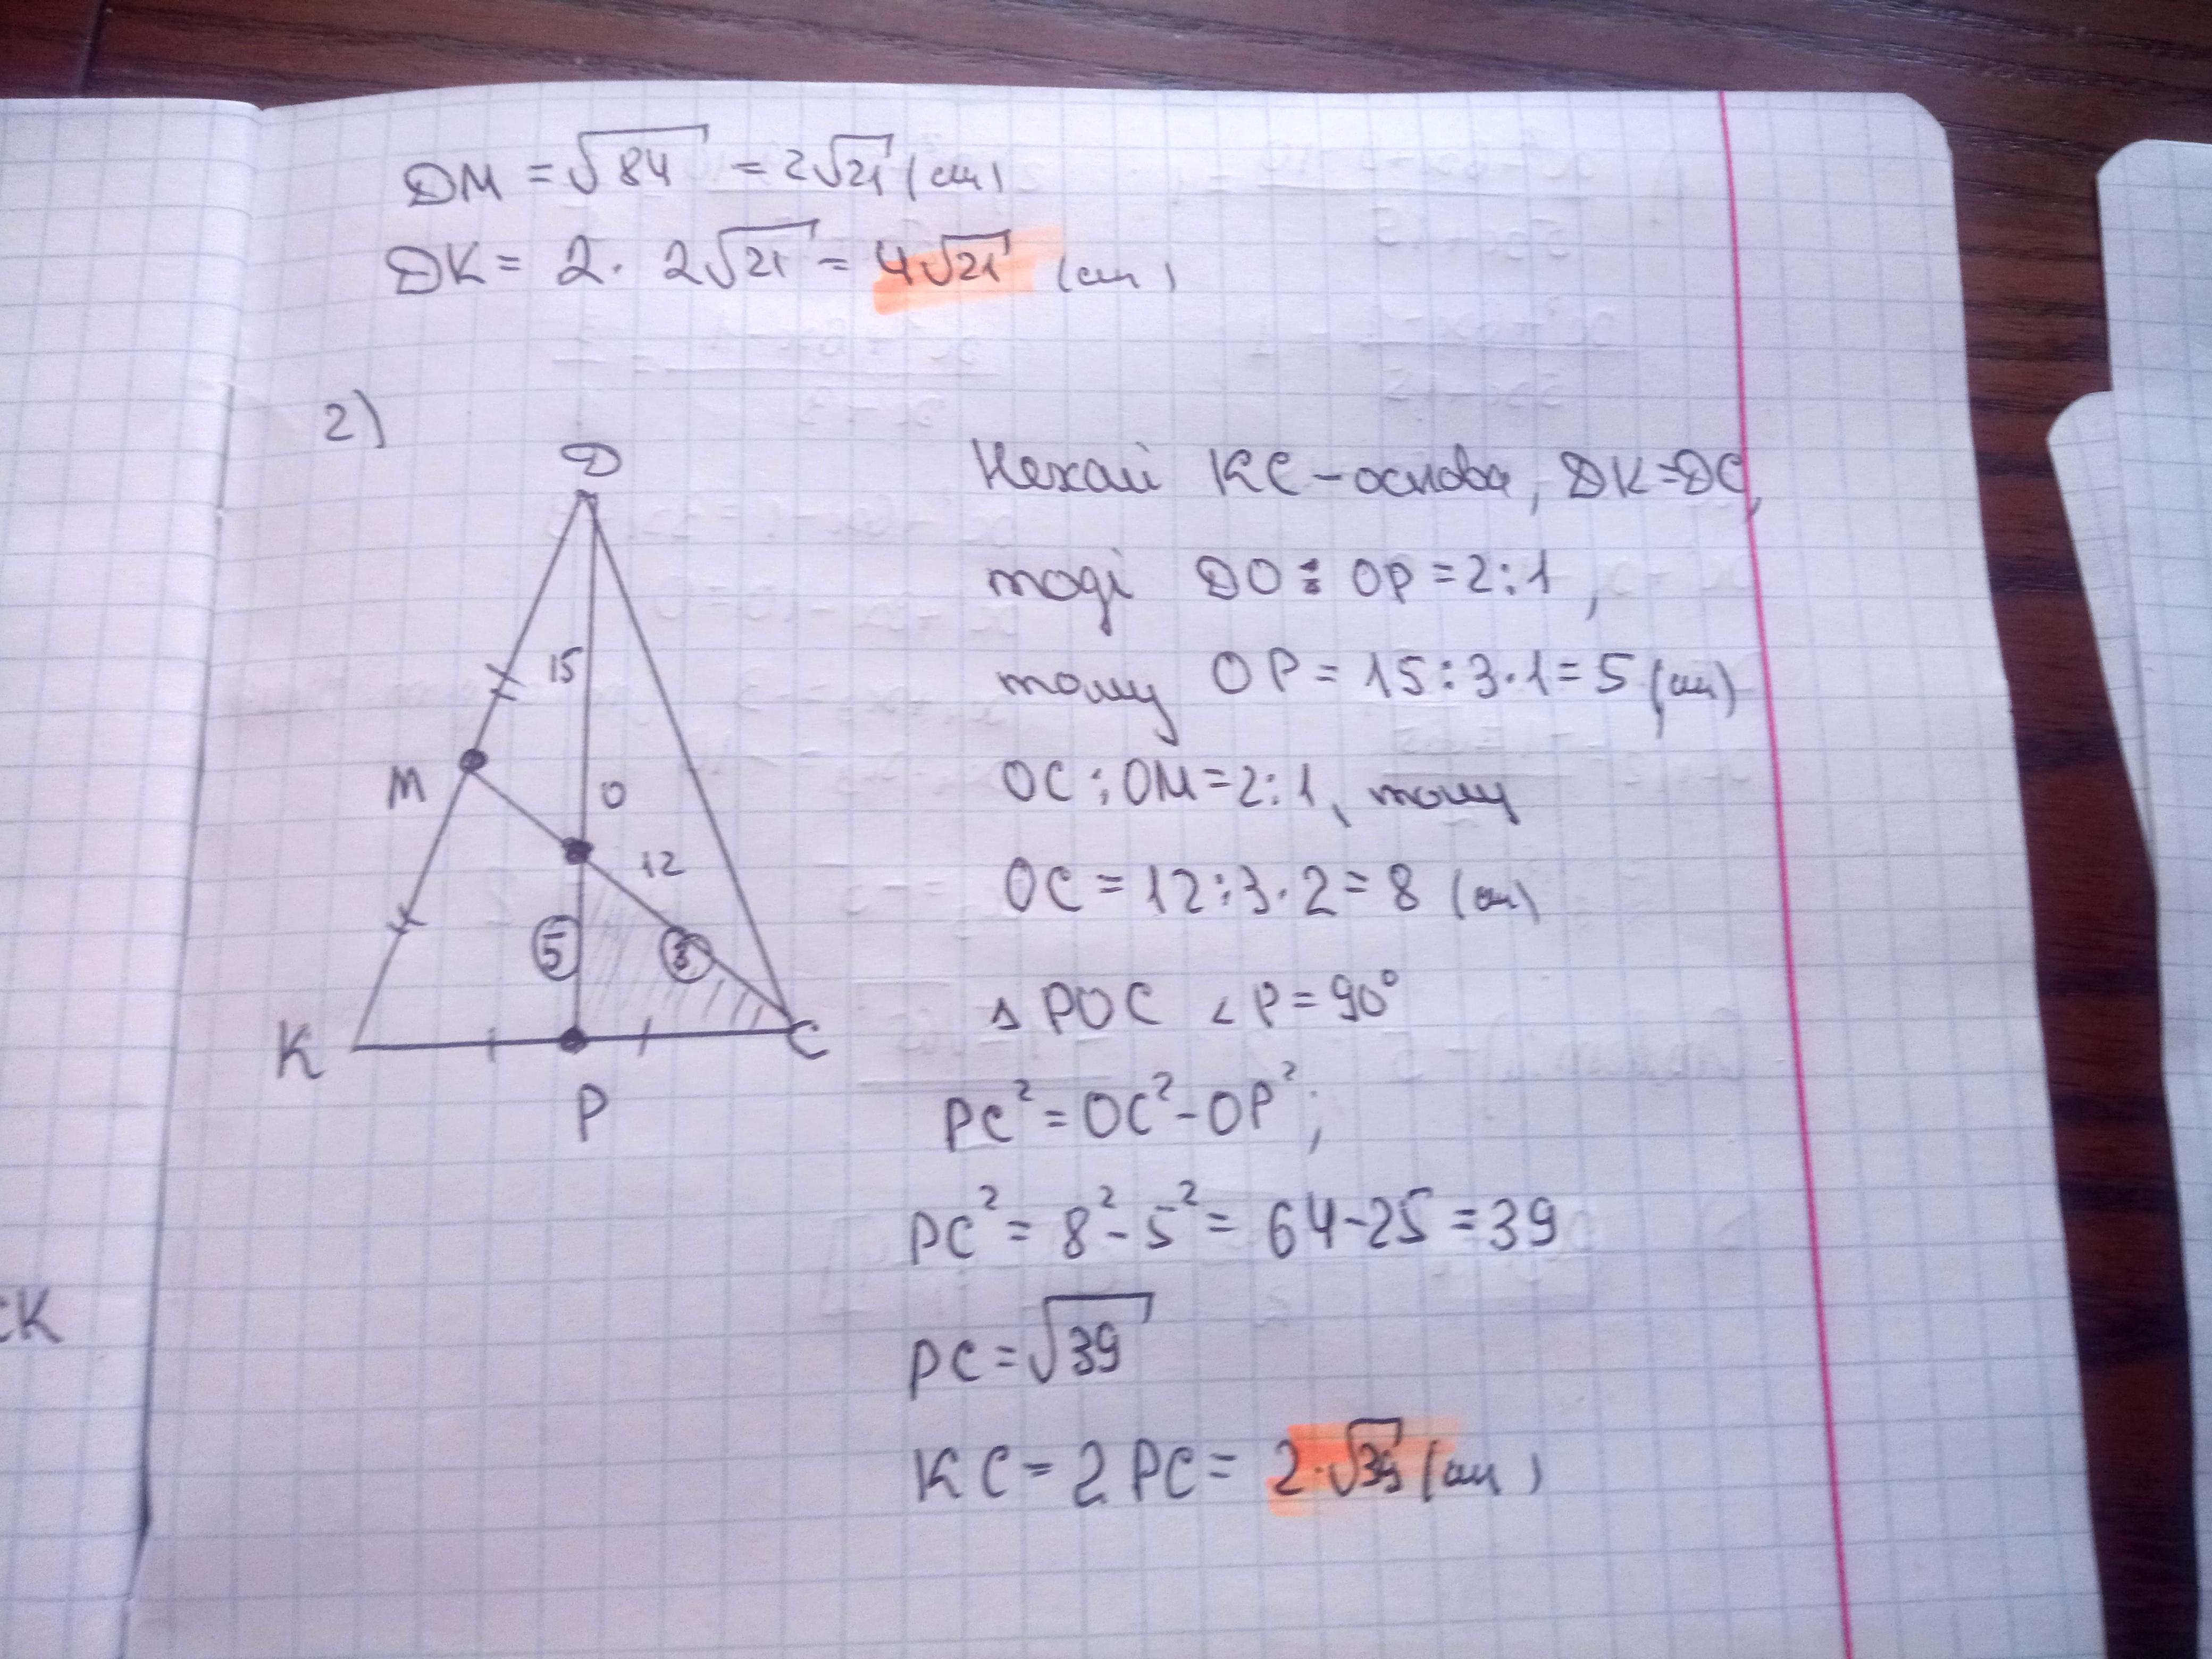 DM = √84 = 2√21 (см)
DK = 2 · 2√21 = 4√21 (см)
2)
D
15
M
O
12
5
K
C
P
Нехай KC – основа, DK = DC,
тоді DO : OP = 2 : 1,
тому OP = 15 : 3 · 1 = 5 (см)
OC : OM = 2 : 1, тому
OC = 12 : 3 · 2 = 8 (см)
Δ POC ∠P = 90°
PC² = OC² - OP²;
PC² = 8² - 5² = 64 - 25 = 39
PC = √39
KC = 2 PC = 2·√39 (см)